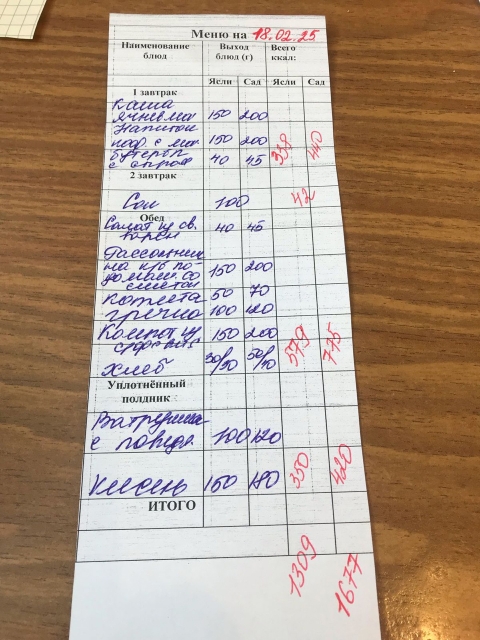 Меню на 18.02.25
Наименование блюд Выход блюд (г) Всего ккал:
Ясли Сад Ясли Сад
1 завтрак
Каша
ячневая 150 200
Напиток
коф. с мол 150 200
бутерб 40 45 338 440
2 завтрак
Сок 100 42
Обед
Салат из св. 40 45
Рассольник
на к/б по
домаш. со 150 200
сметан
Котлета 50 70
гречка 100 120
Компот из 150 200
Хлеб 30/30 50/40 579 775
Уплотнённый
полдник
Ватрушка
с повидл 100 120
Кисель 150 180 350 420
ИТОГО
1309 1677